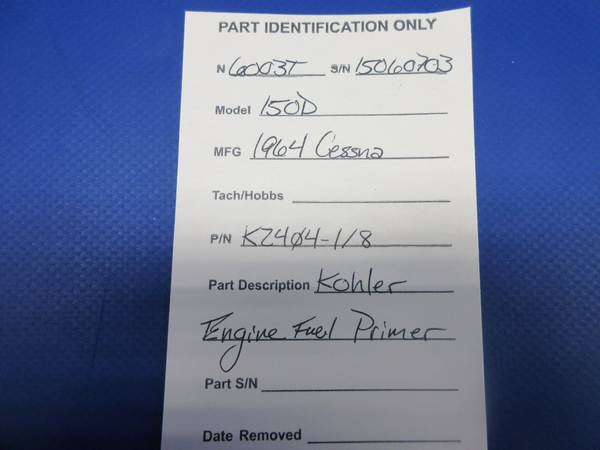 PART IDENTIFICATION ONLY
N 6003T S/N 15060703
Model 150D
MFG 1964 Cessna
Tach/Hobbs
P/N K2404-1/8
Part Description Kohler
Engine Fuel Primer
Part S/N
Date Removed